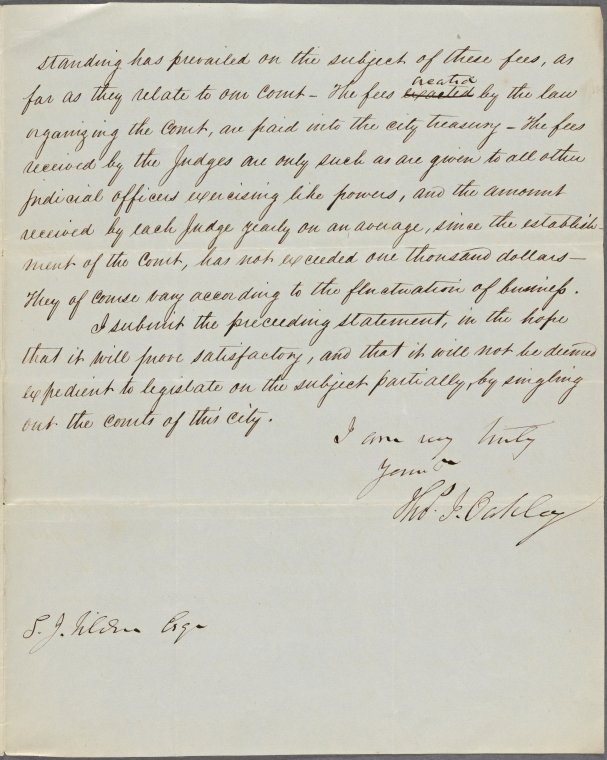 standing has prevailed on the subject of these fees, as
far as they relate to our Court – The fees exacted created by the law
organizing the Court, are paid into the city treasury – The fees
received by the Judges are only such as are given to all other
judicial officers exercising like powers, and the amount
received by each Judge yearly on an average, since the establish-
ment of the Court, has not exceeded one thousand dollars –
They of course vary according to the fluctuation of business.
I submit the preceeding statement, in the hope
that it will prove satisfactory, and that it will not be deemed
expedient to legislate on the subject partially, by singling
out the courts of this city.
I am very truly
Yours
Thos. J. Oakley
S. J. Tilden Esqr